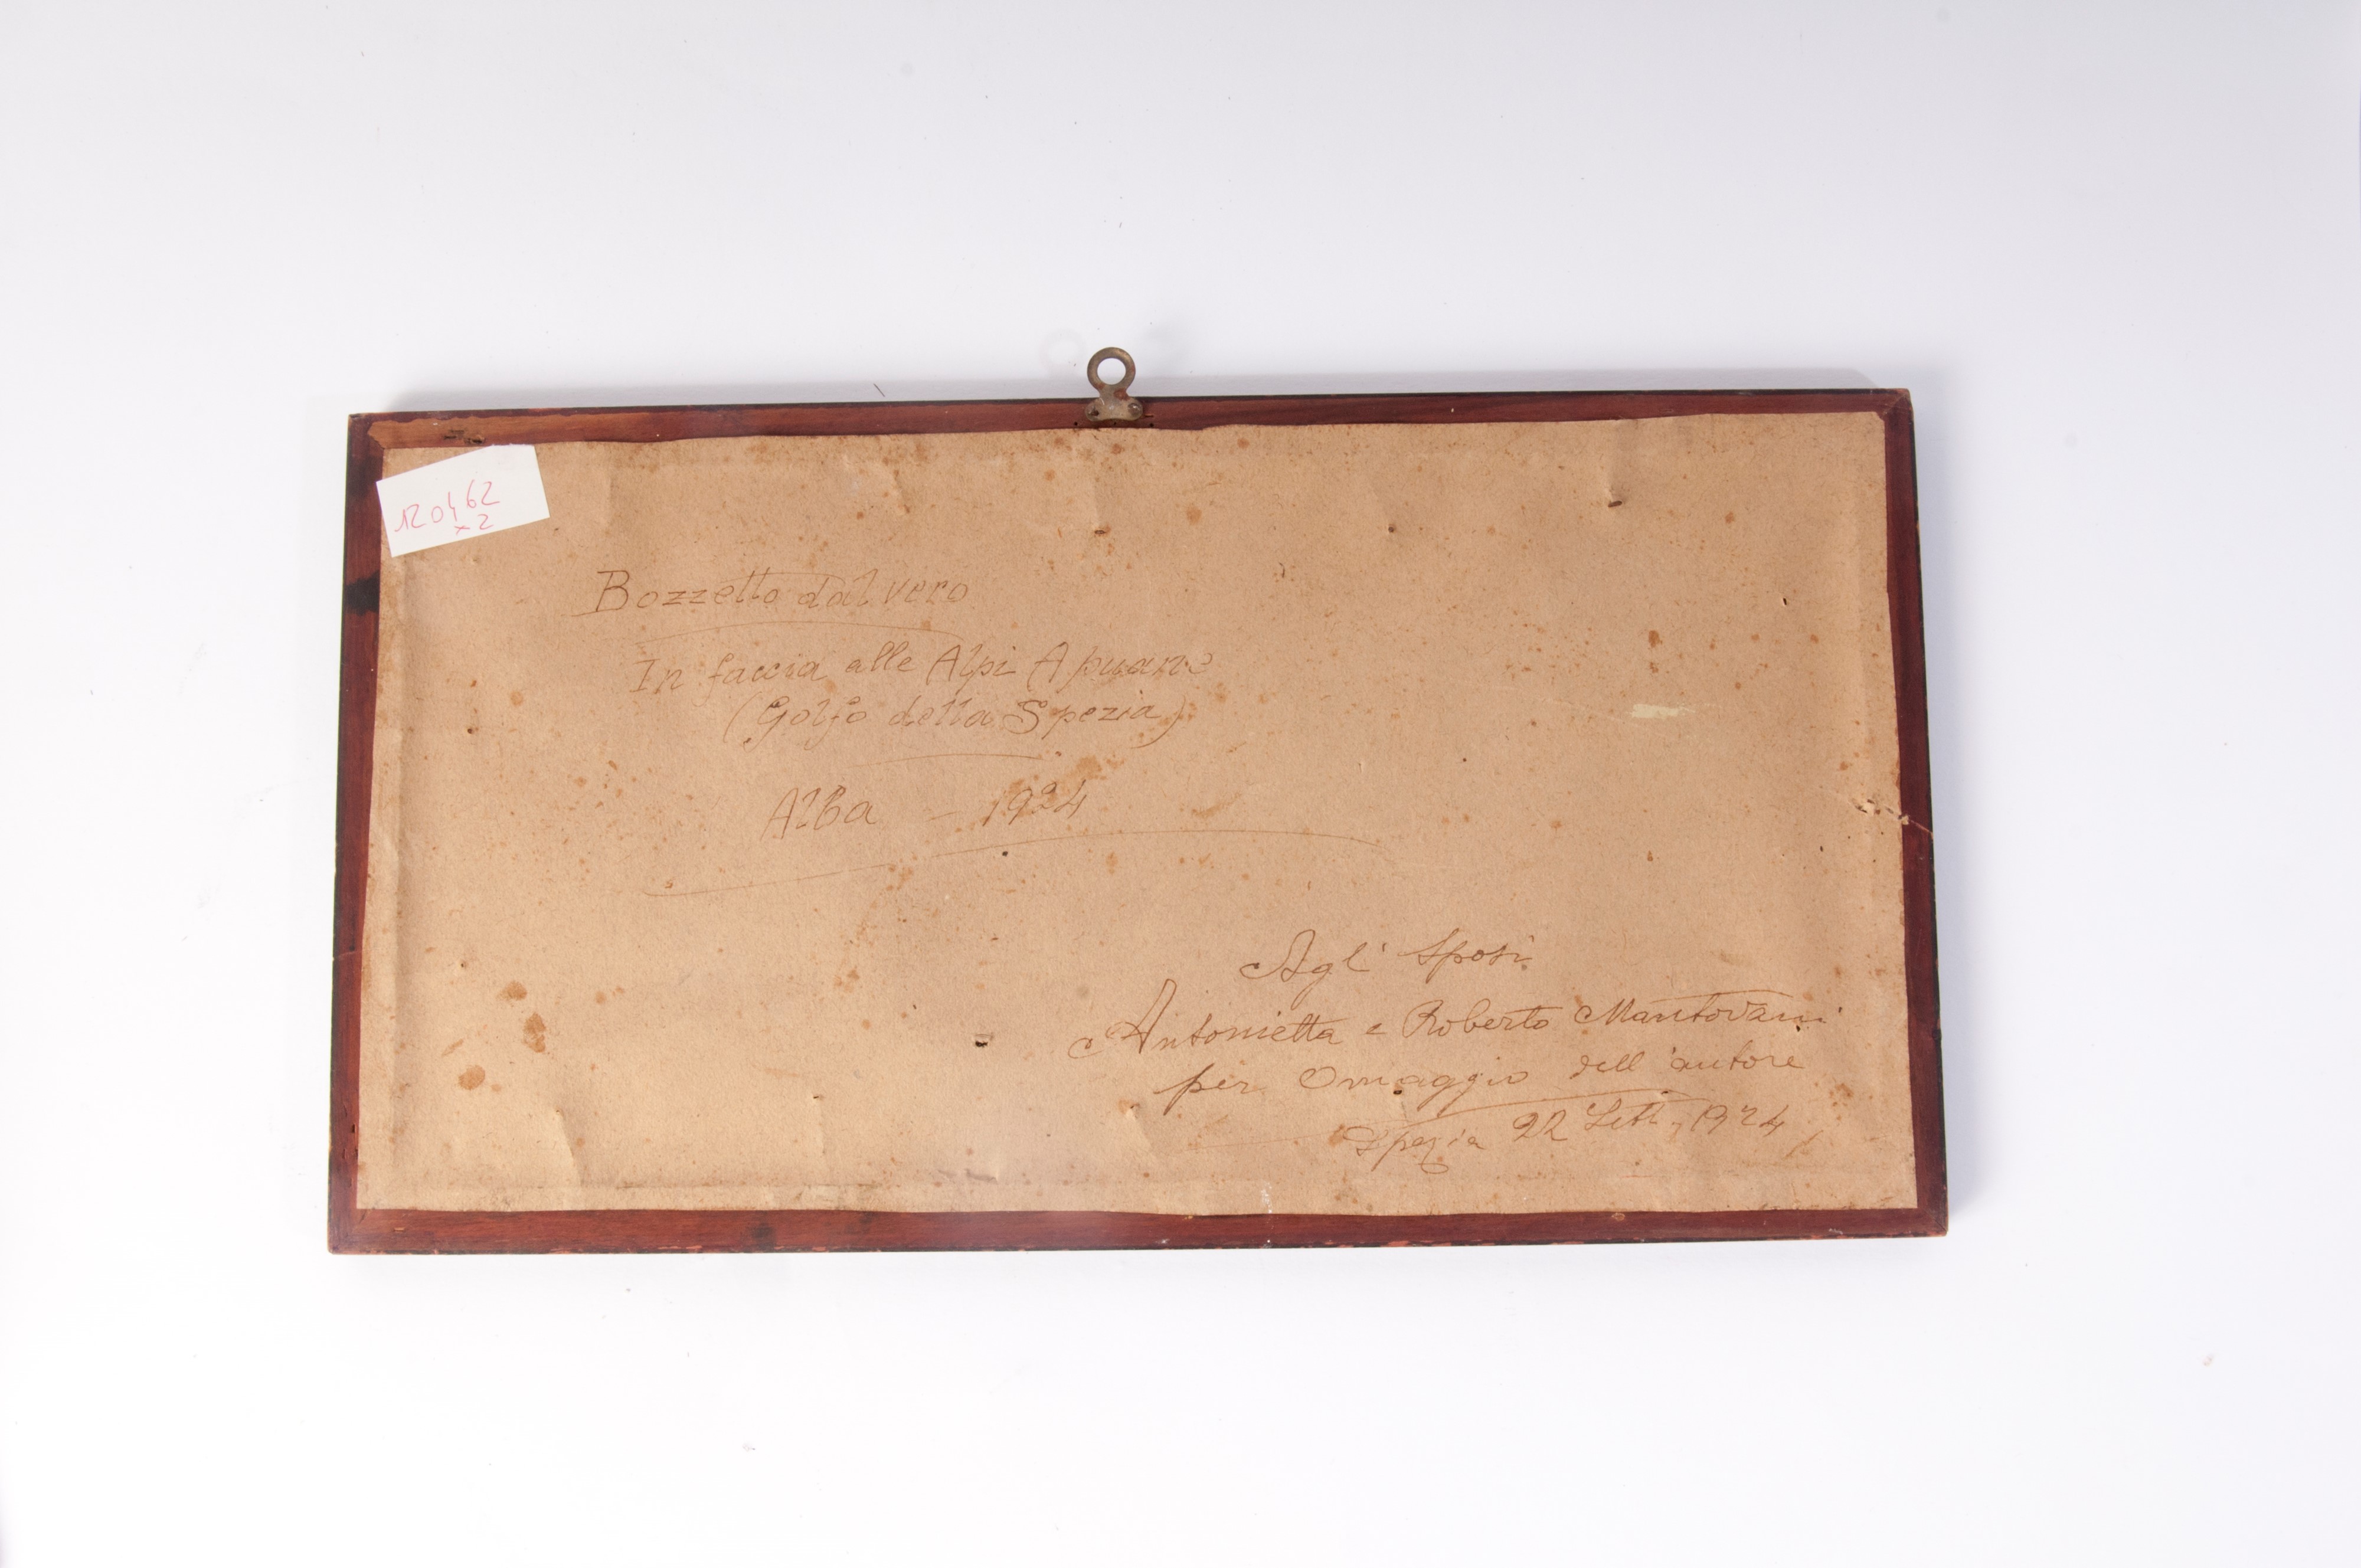 120462
x2
Bozzetto dal vero
In faccia alle Alpi Apuane
(Golfo della Spezia)
Alba - 1924
Agl' Sposi
Antonietta e Roberto Mantovani
per Omaggio dell'autore
Spezia 22 Sett. 1924